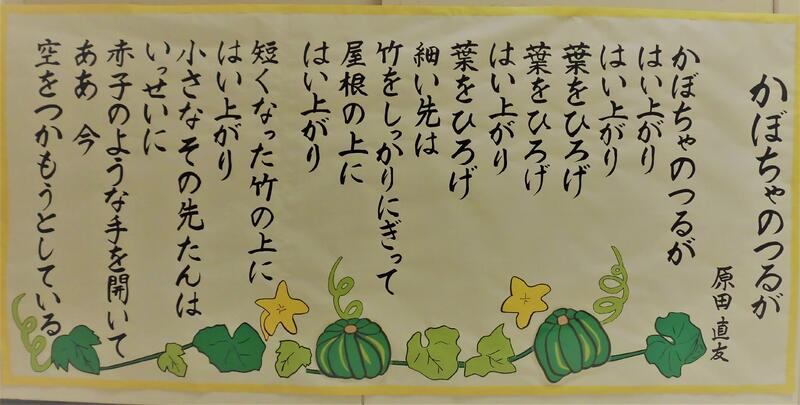 かぼちゃのつるが
原田 直友
かぼちゃのつるが
はい上がり
はい上がり
葉をひろげ
葉をひろげ
はい上がり
葉をひろげ
細い先は
竹をしっかりにぎって
屋根の上に
はい上がり
短くなった竹の上に
はい上がり
小さなその先たんは
いっせいに
赤子のような手を開いて
ああ 今
空をつかもうとしている